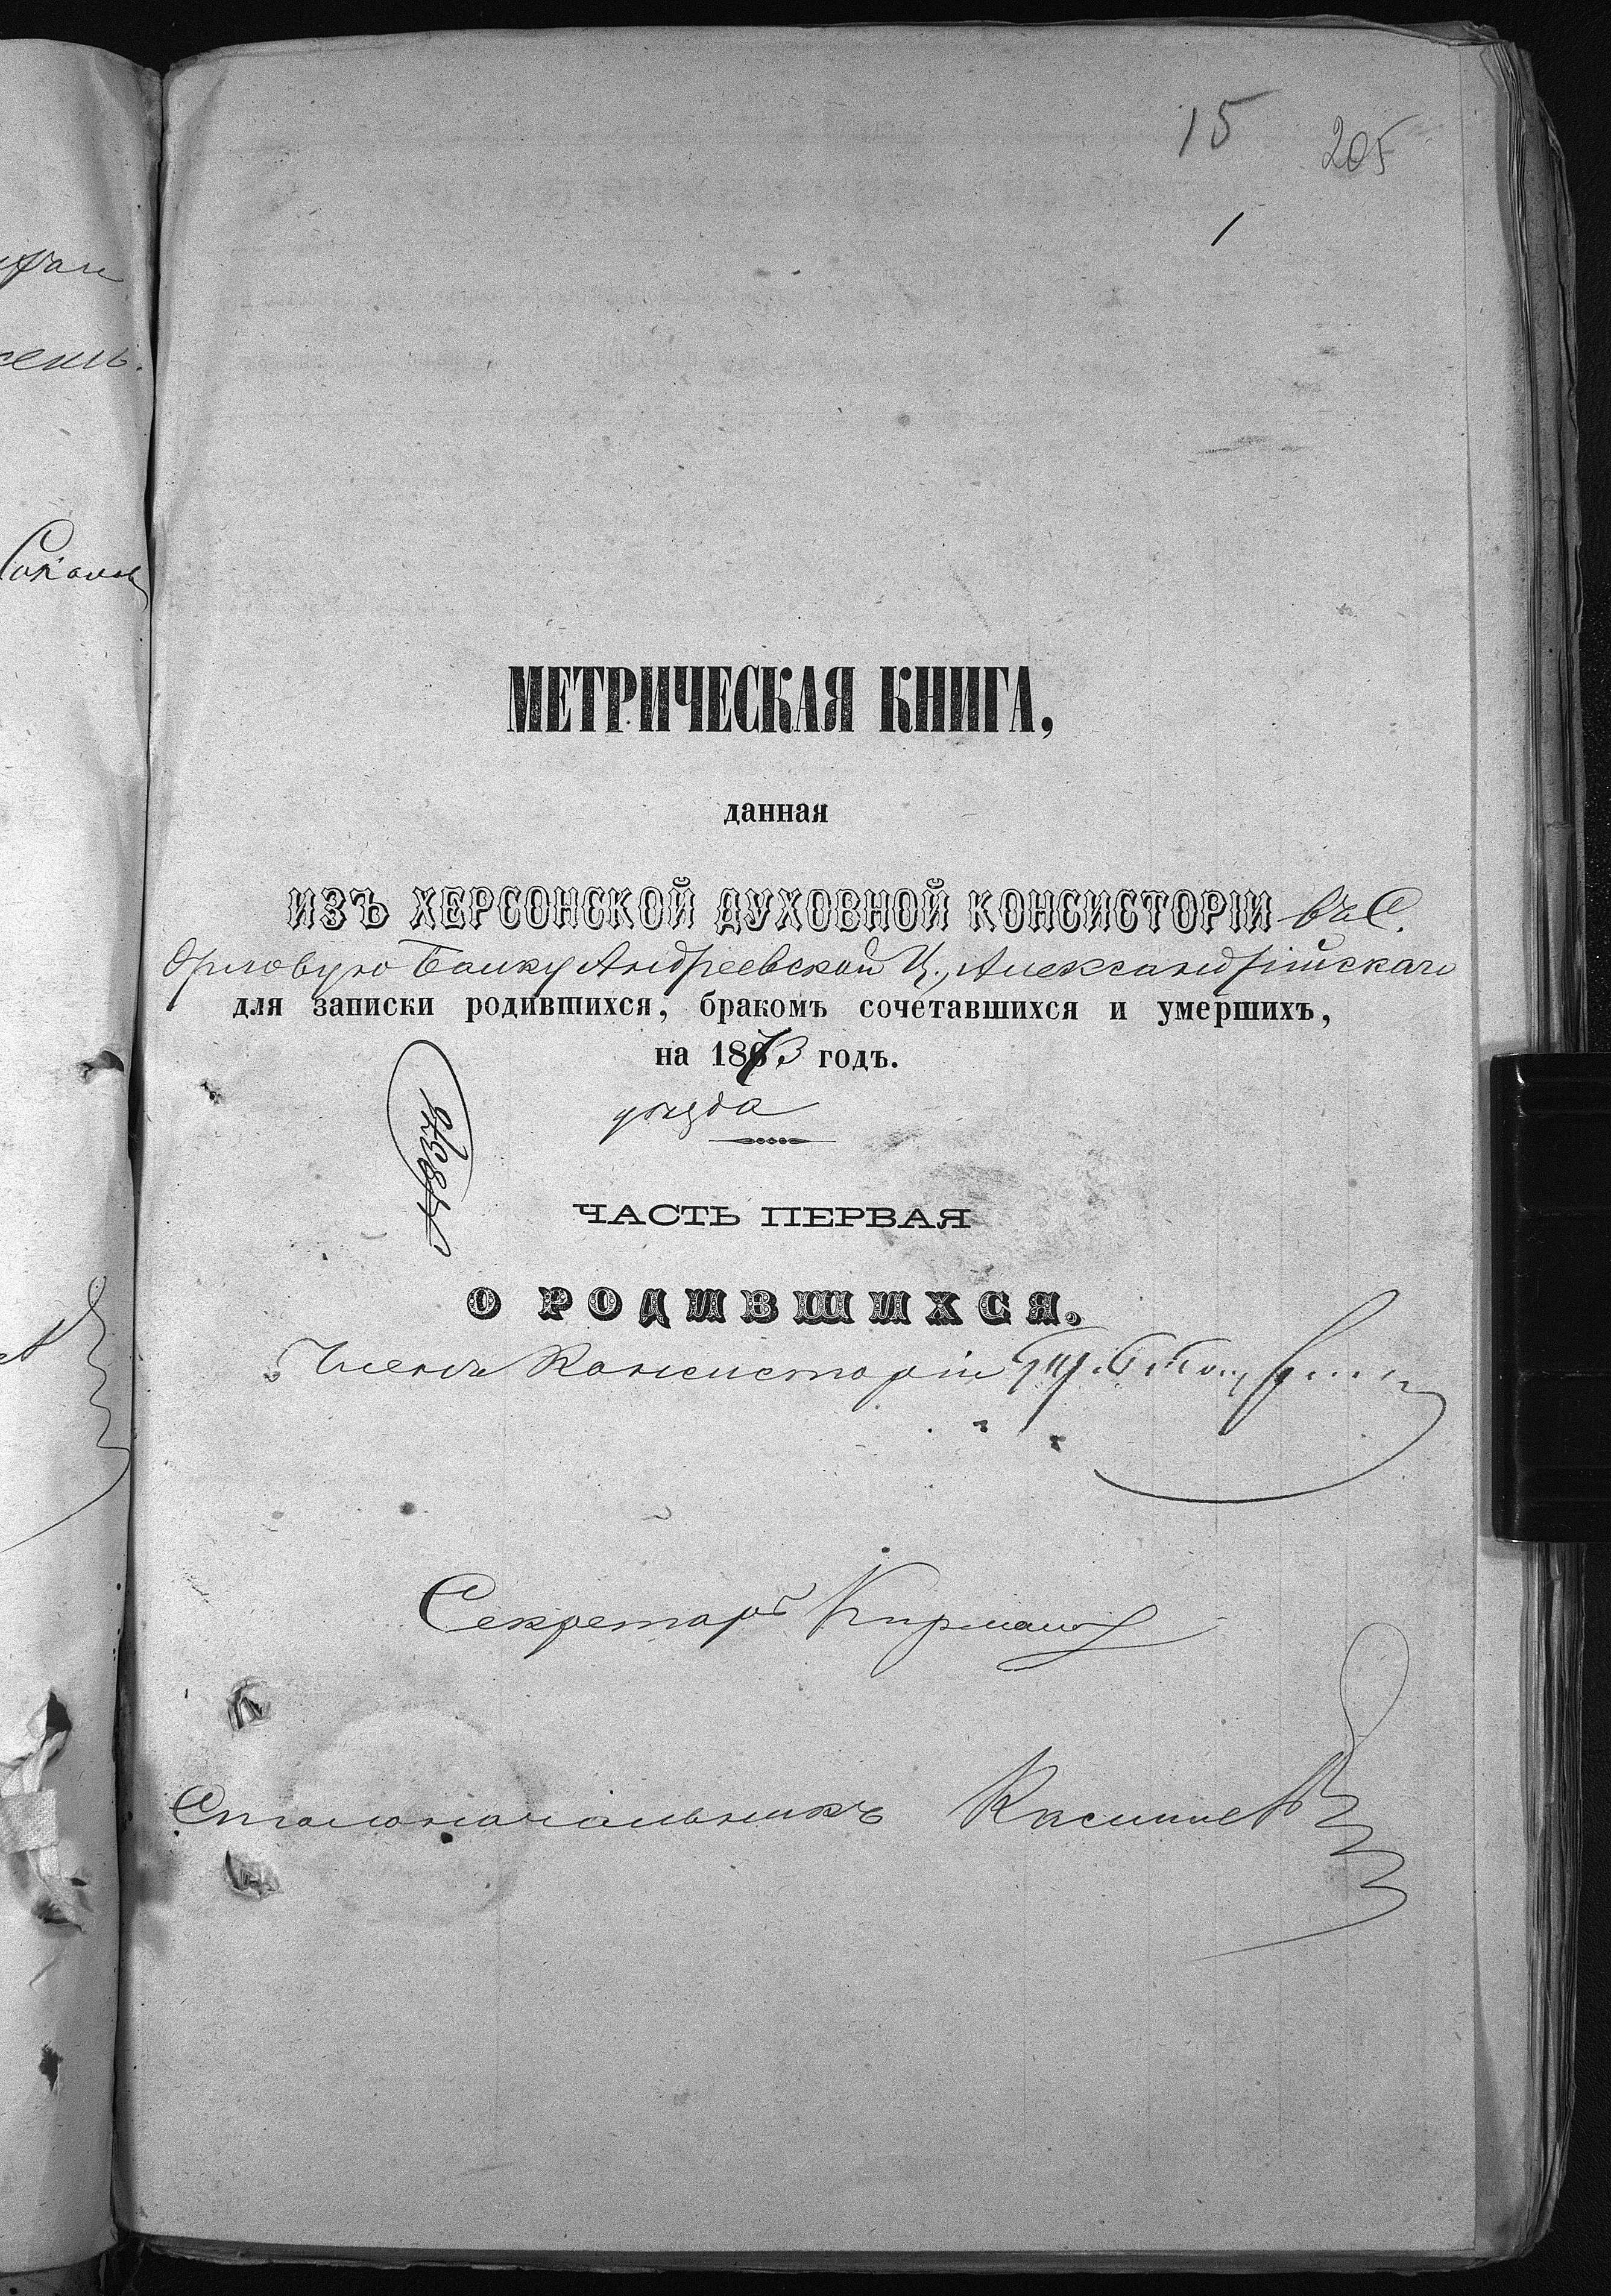 15 205
1
МЕТРИЧЕСКАЯ КНИГА,
данная
ИЗЪ ХЕРСОНСКОЙ ДУХОВНОЙ КОНСИСТОРІИ въ С.
Орловую Балку Андреевской Ц., Александрійскаго
для записки родившихся, бракомъ сочетавшихся и умершихъ,
на 1873 годъ.
уѣзда
ЧАСТЬ ПЕРВАЯ
О РОДИВШИХСЯ.
Членъ Консисторіи
Секретарь
Столоначальникъ